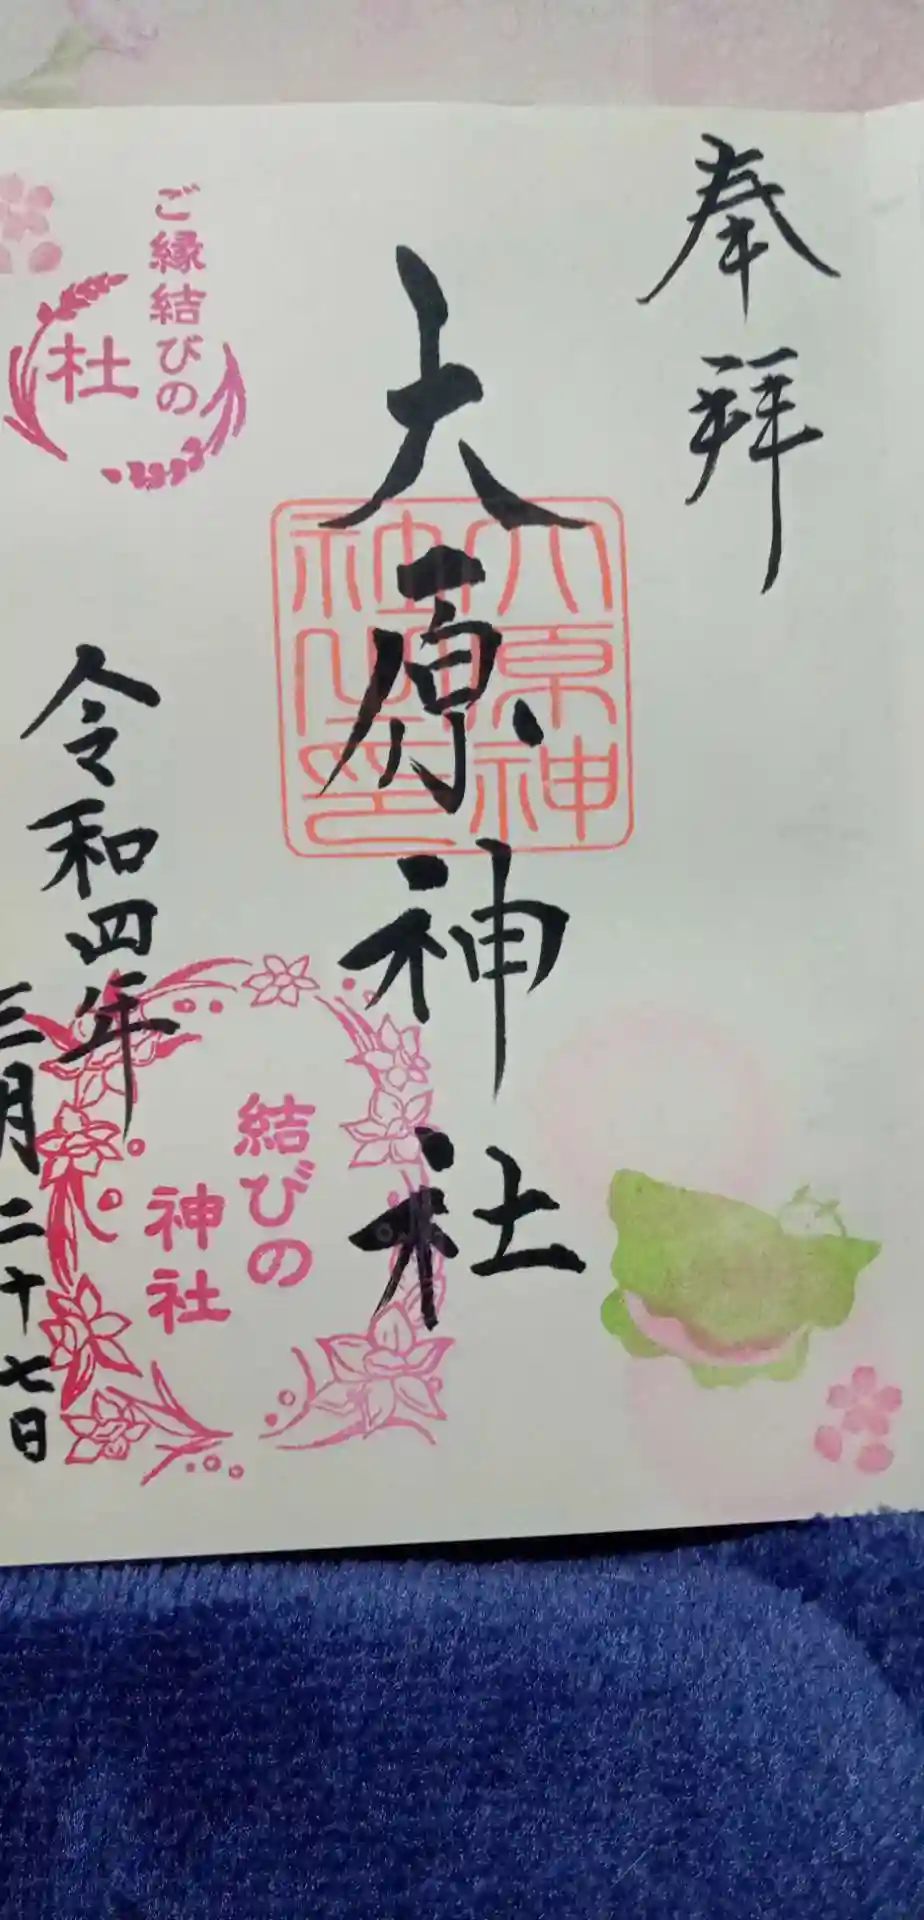 奉拝
大原神社
大原神社之印
ご縁結びの
杜
令和四年
三月二十七日
結びの
神社